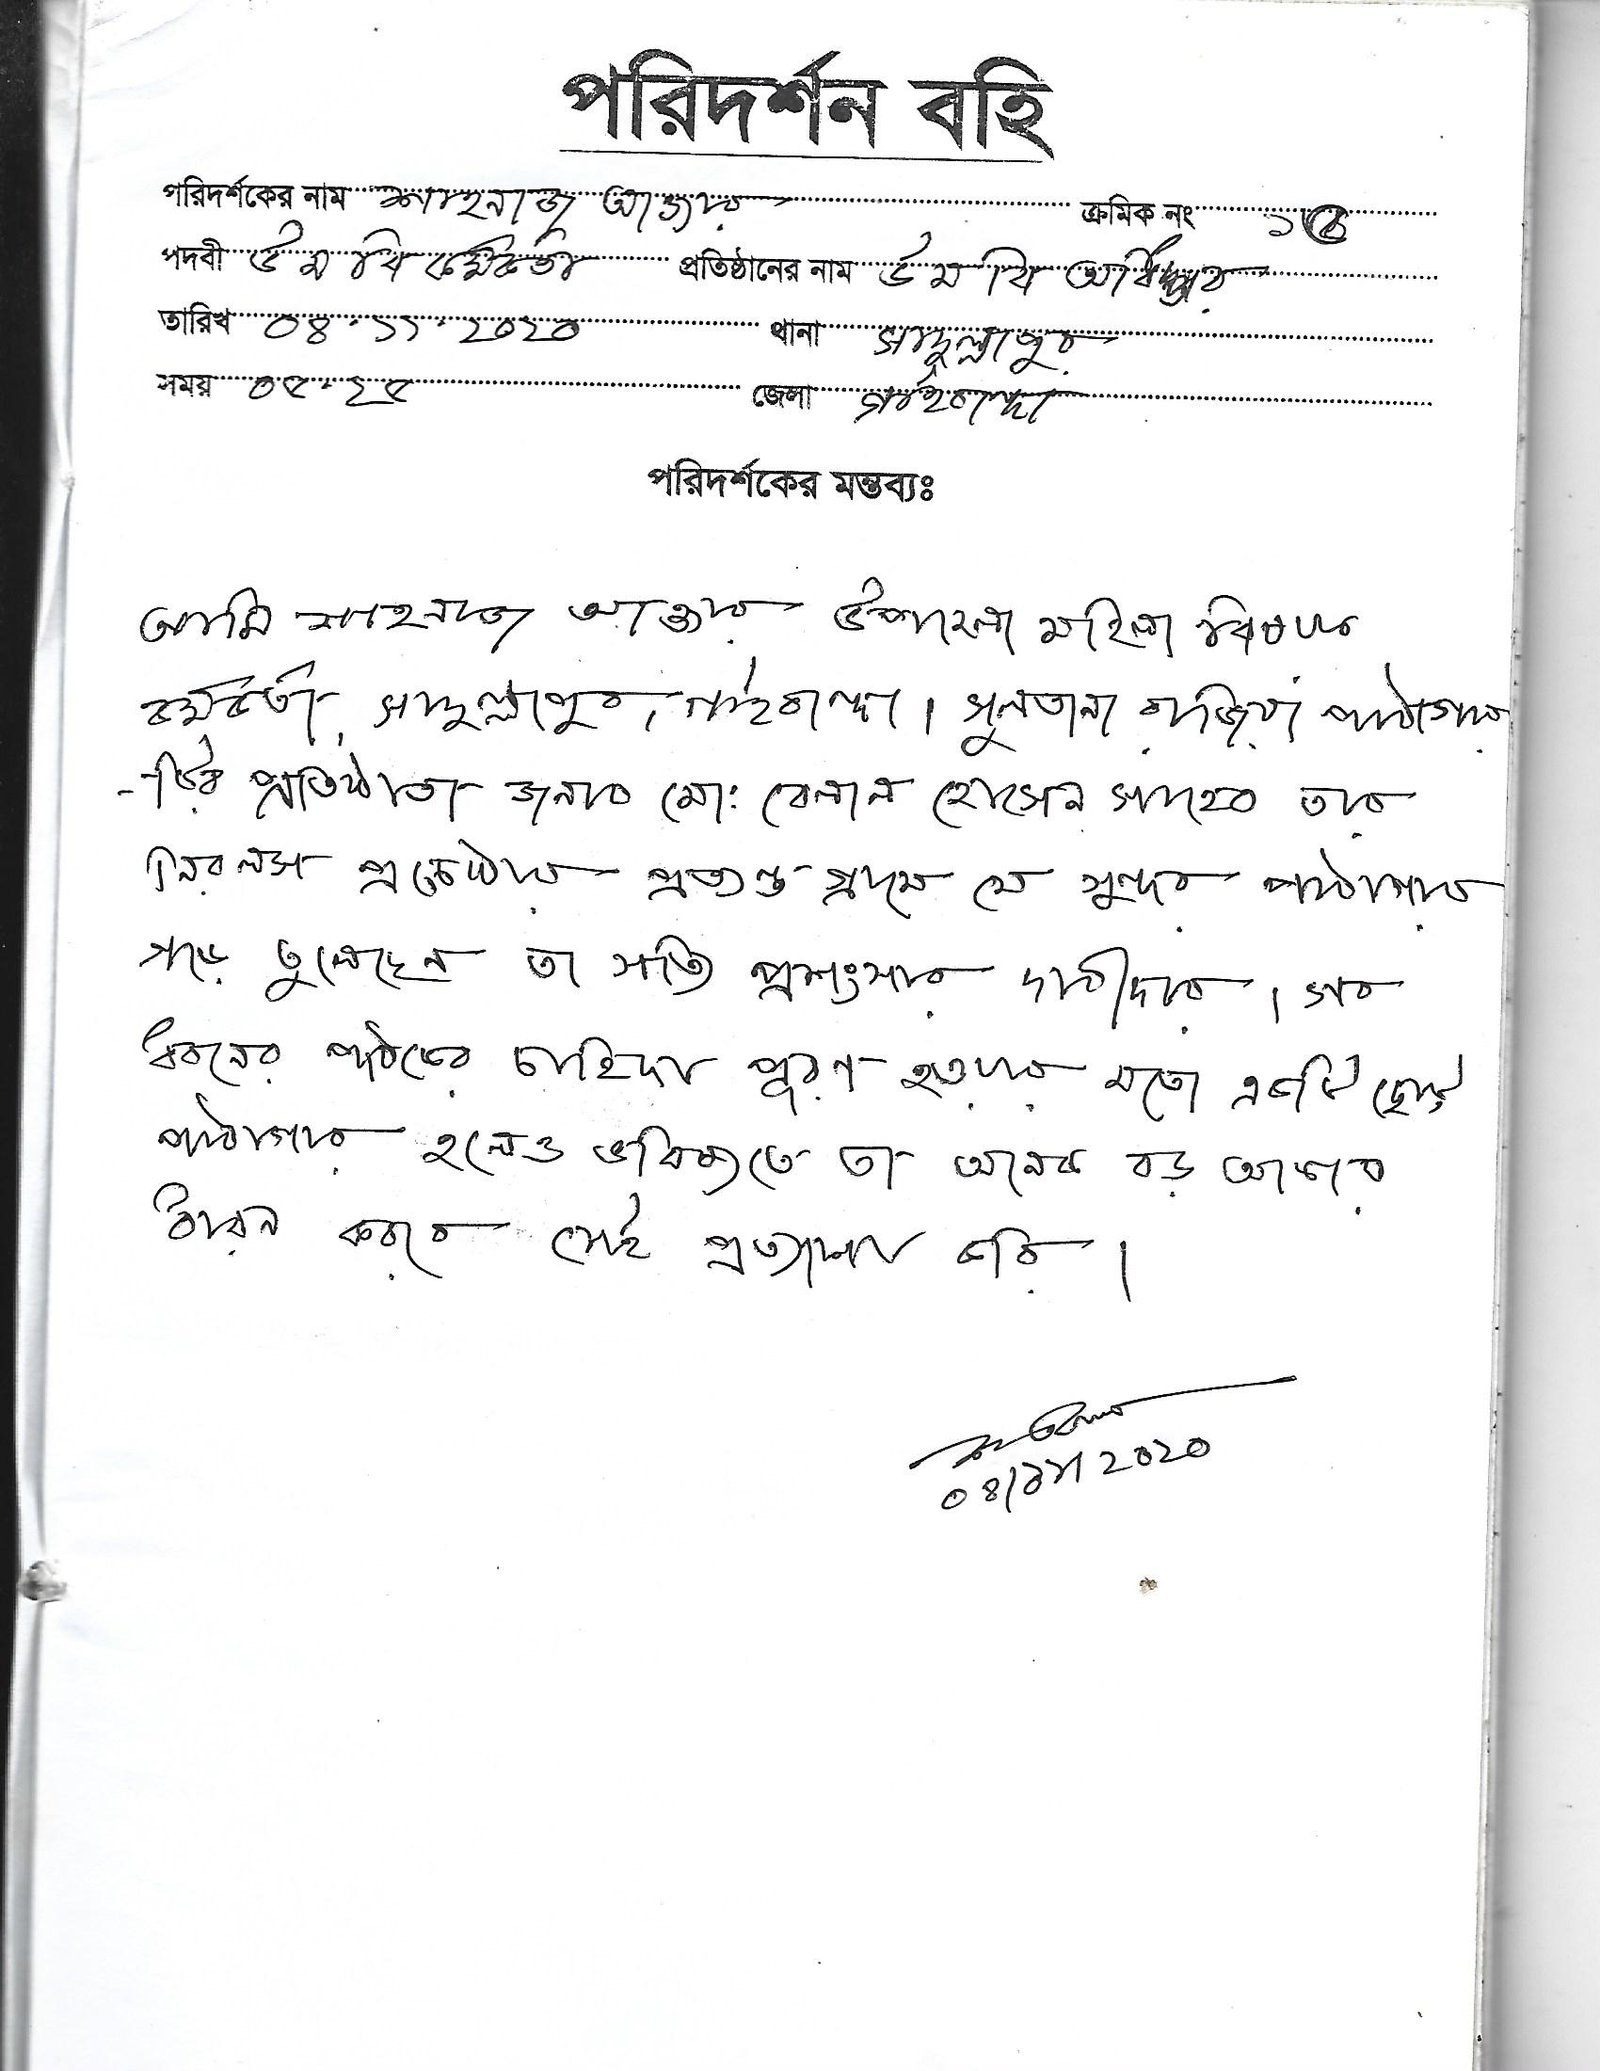 পরিদর্শন বহি
পরিদর্শকের নাম শাহনাজ আক্তার ক্রমিক নং
পদবী উ ম বি কর্মকর্তা প্রতিষ্ঠানের নাম উ ম বি অধিদপ্তর
তারিখ ০৪.১১.২০২০ থানা সাদুল্লাপুর
সময় ০৫.২৫ জেলা গাইবান্ধা
পরিদর্শকের মন্তব্যঃ
আমি শাহনাজ আক্তার উপজেলা মহিলা বিষয়ক
কর্মকর্তা, সাদুল্লাপুর, গাইবান্ধা। সুলতানা রাজিয়া পাঠাগার
-টির প্রতিষ্ঠাতা জনাব মো: বেলাল হোসেন সাহেব তার
নিরলস প্রচেষ্ঠায় প্রত্যন্ত গ্রামে যে সুন্দর পাঠাগার
গড়ে তুলেছেন তা সত্যি প্রশংসার দাবীদার। সব
ধরনের পাঠকের চাহিদা পূরণ হওয়ার মতো একটি ছোট
পাঠাগার হলেও ভবিষ্যতে তা অনেক বড় আকার
ধারন করবে সেই প্রত্যাশা করি।
০৪/১১/২০২০